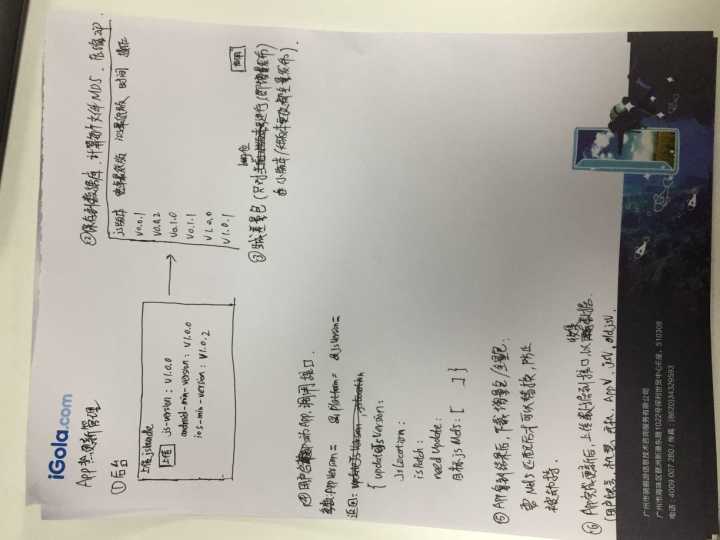 iGola.com
App热更新管理
①后台
上传jsbundle
上传
js-version : v1.0.0
android-min-version : v1.0.0
ios-min-version : v1.0.2
②保存到数据库,计算每个文件MD5,压缩zip.
js版本 安卓最低版 ios最低版 时间
v0.0.1
v0.0.2
v0.1.0
v0.1.1
v1.0.0
v1.0.1
③生成差量包(只对
bug位
进行(即增量发布)
小版本/大版本更改都全量发布).
④用户启动App,调用接口.
参数:AppVersion= &platform= &jsVersion=
返回:
{ updateJsVersion:
jsLocation:
isPatch:
needUpdate:
目标jsMd5:[ ]}
⑤App拿到结果后,下载增量包/全量包.
需Md5匹配后才可以替换,防止
被劫持.
⑥App完成更新后,上传数据到接口,以
收集
数据.
AppV, jsV, oldjsV.
广州市骑鹅游信息技术咨询服务有限公司
广州市海珠区琶洲新港东路1022号保利世贸中心E座,510308
电话:4009 007 280 / 传真:(8620)34329593